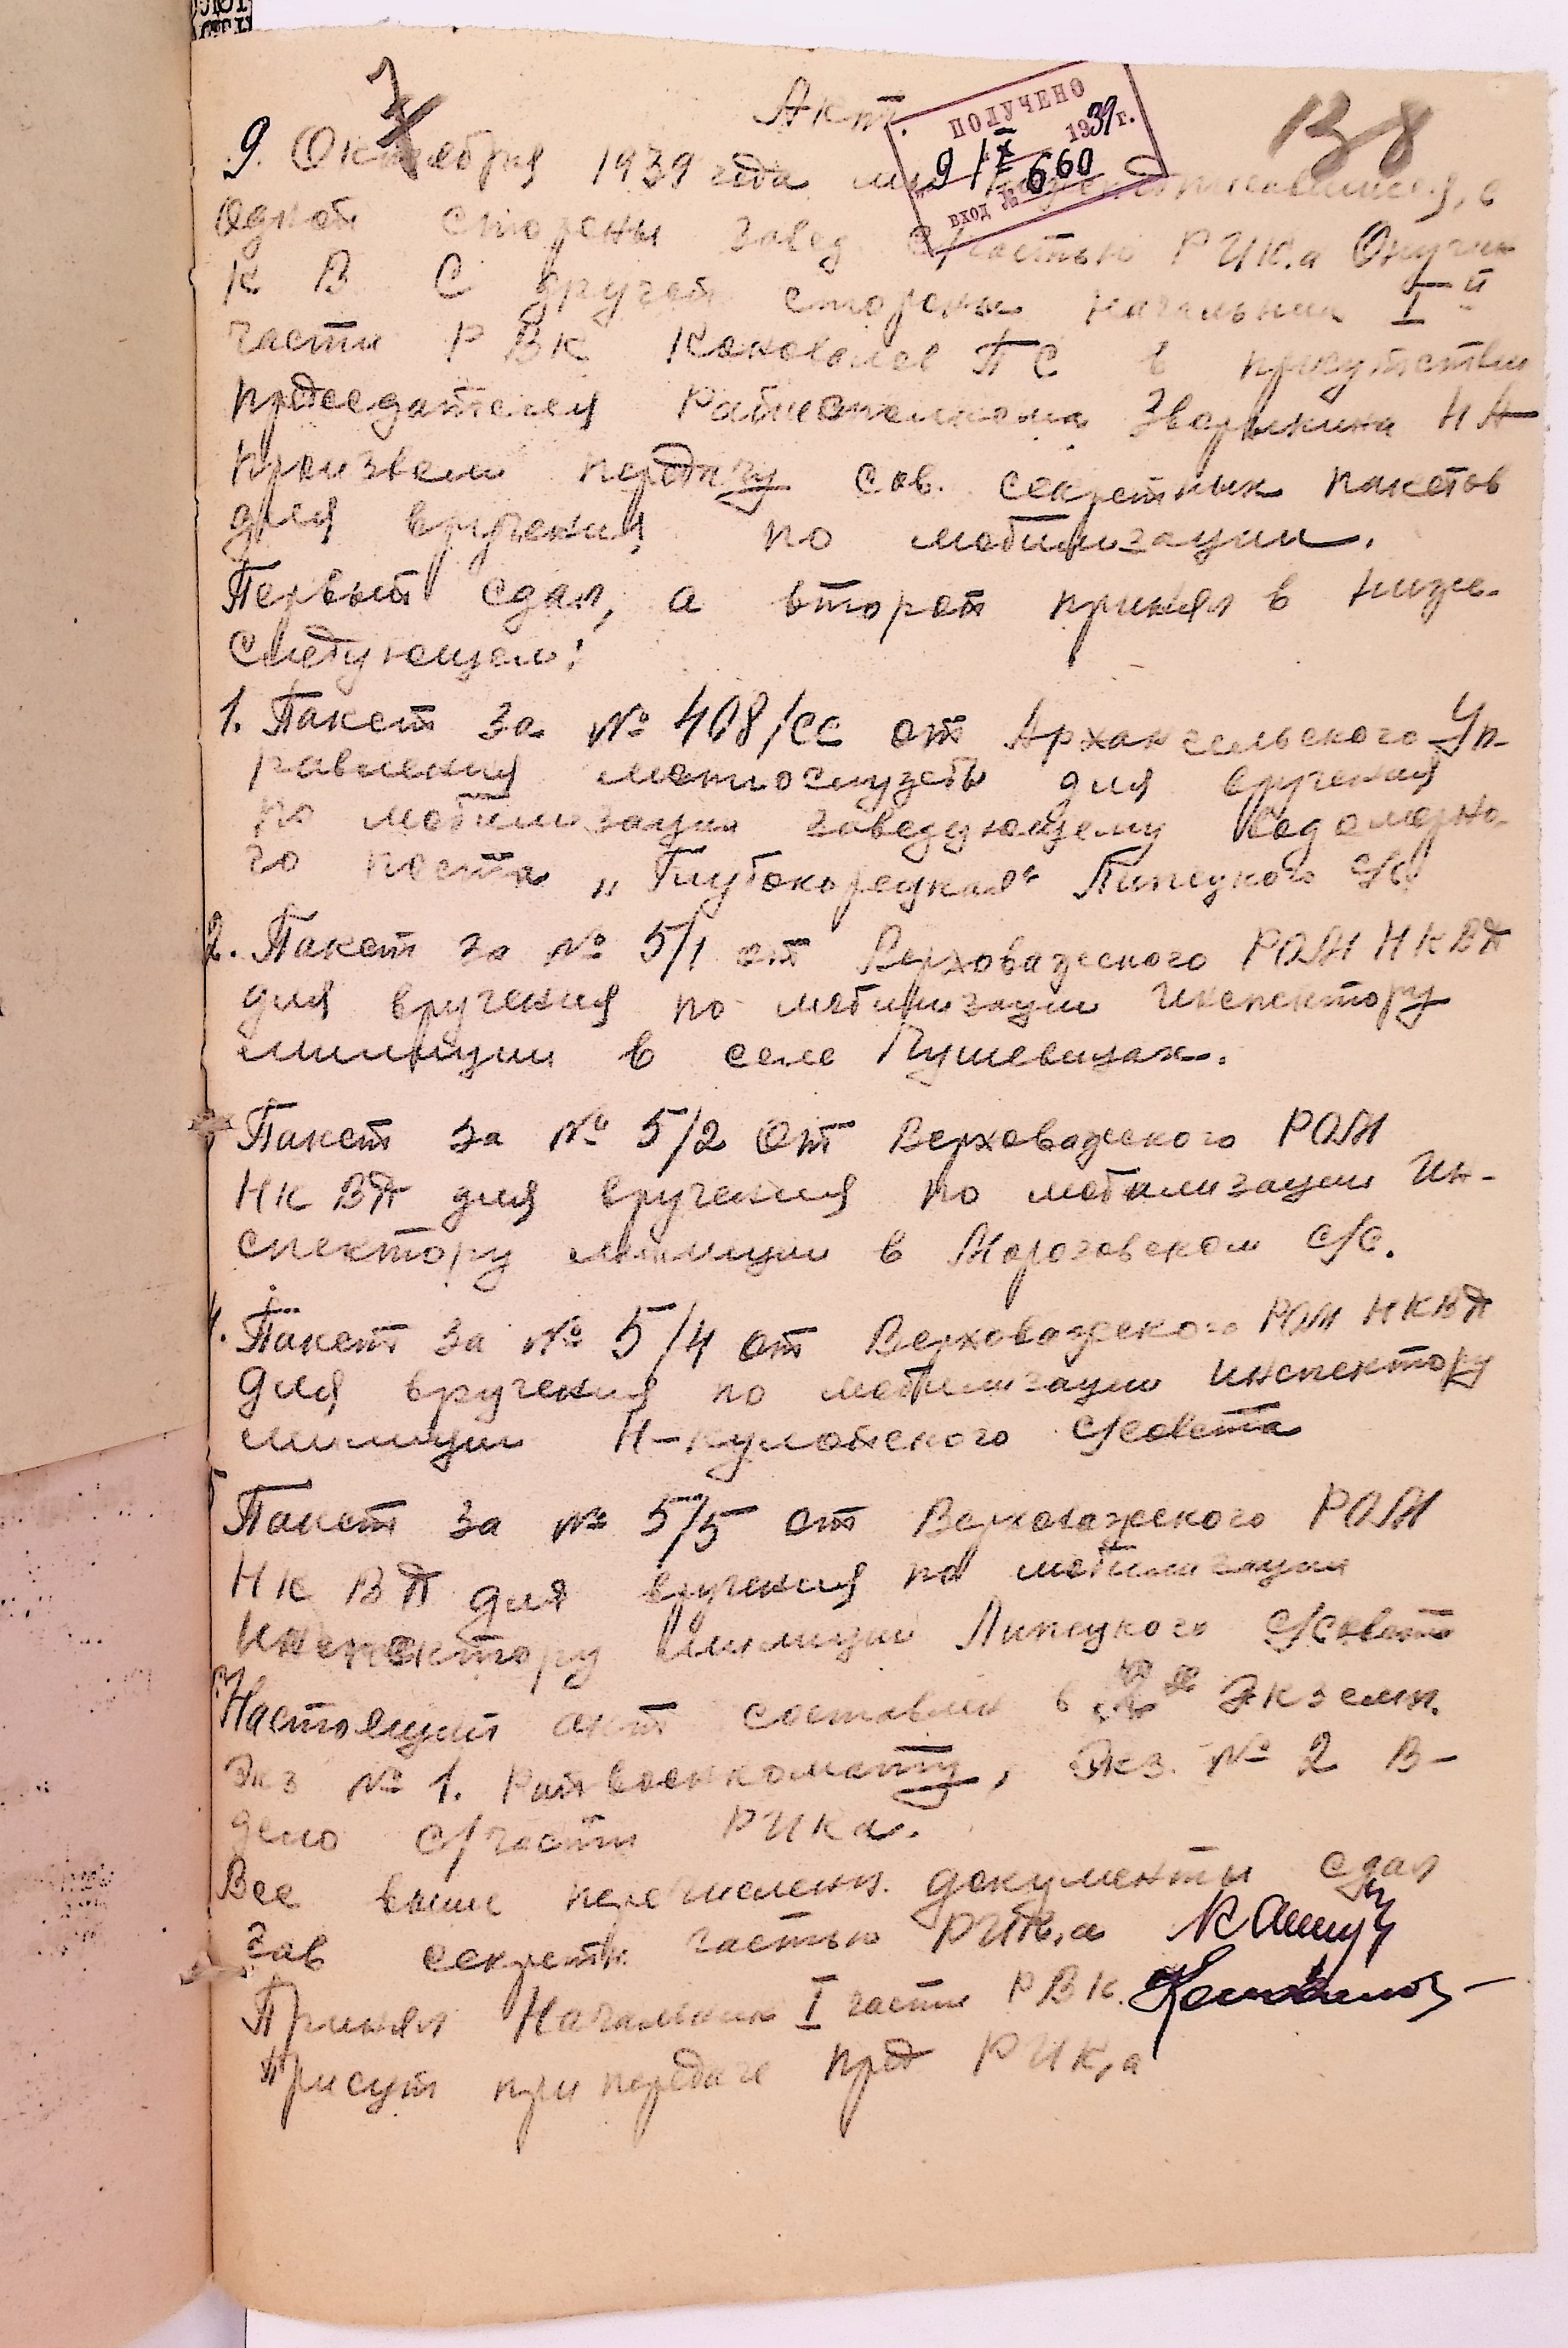 7
Акт.
138
ПОЛУЧЕНО
9/X 1939 г.
вход № 660
9. Октября 1939 года мы нижеподписавшиеся, с
одной стороны завед. с/частью РИК,а Онучин
К В С другой стороны начальник I й
части РВК Коновалов П С в присутствии
председателя Райисполкома Зварыкина Н А
произвели передачу сов. секретных пакетов
для вручения по мобилизации.
Первый сдал, а второй принял в ниже-
следующем:
1. Пакет за № 408/сс от Архангельского Уп-
равления метеослужбы для вручения
по мобилизации заведующему водомерно-
го поста „Глубокорецкая“ Липецкого с/с
2. Пакет за № 5/1 от Верховажского РОМ НКВД
для вручения по мобилизации инспектору
милиции в селе Чушевицах.
Пакет за № 5/2 от Верховажского РОМ
НКВД для вручения по мобилизации ин-
спектору милиции в Морозовском с/с.
4. Пакет за № 5/4 от Верховажского РОМ НКВД
для вручения по мобилизации инспектору
милиции Н-Кулойского с/совета
Пакет за № 5/5 от Верховажского РОМ
НКВД для вручения по мобилизации
инспектору милиции Липецкого с/совета
Настоящий акт составлен в 2х экземп.
Экз № 1. Райвоенкомату, Экз. № 2 в-
дело с/части РИКа.
Все выше перечисленн. документы сдал
Зав секретн. частью РИК,а
Принял Начальник I части РВК.
Присут при передаче пред РИК,а